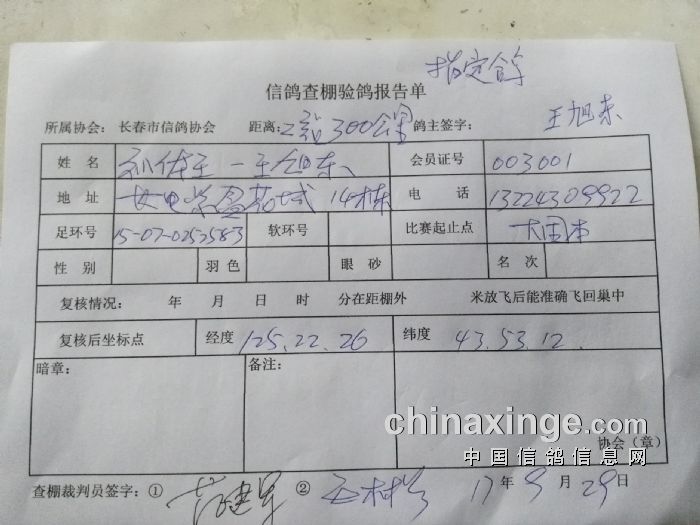 指定鸽
信鸽查棚验鸽报告单
所属协会： 长春市信鸽协会 距离：二站300公里 鸽主签字： 王旭东
姓 名 王旭东 会员证号 003001
地 址 14栋 电 话 13224309922
足环号 15-07-0253583 软环号 比赛起止点
性 别 羽 色 眼 砂 名 次
复核情况： 年 月 日 时 分在距棚外 米放飞后能准确飞回巢中
复核后坐标点 经度 125.22.26 纬度 43.53.12.
暗章： 备注：
chinaxinge.com
协会（章）
中国信鸽信息网
查棚裁判员签字：① ② 17年9月29日